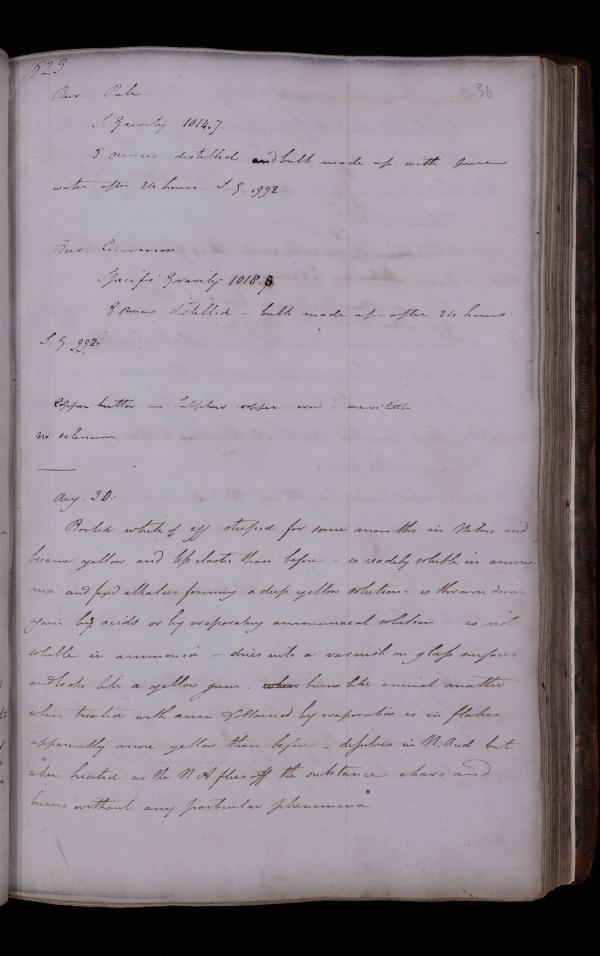 1823
36
Beer Pale
S. Gravity 1014.7
8 ounces distilled and bulk made up with pure
water after 24 hours. S. G. .992
Beer Common
Specific Gravity 1018.8
8 ounces distilled - bulk made up - after 24 hours
S. G. 992.
Copper button — Sulphur copper iron
no selenium
Aug. 30.
Boiled white of egg steeped for some months in Nitric acid
became yellow and less elastic than before - is readily soluble in ammo
nia and fixed alkalies forming a deep yellow solution - is thrown down
again by acids or by evaporating ammoniacal solution is not
soluble in ammonia - dries into a varnish on glass surfaces
and looks like a yellow gum. when burns like animal matter
when treated with amm & obtained by evaporation is in flakes
apparently more yellow than before - dissolves in N. Acid but
when heated as the N A flies off the substance chars and
burns without any particular phenomena